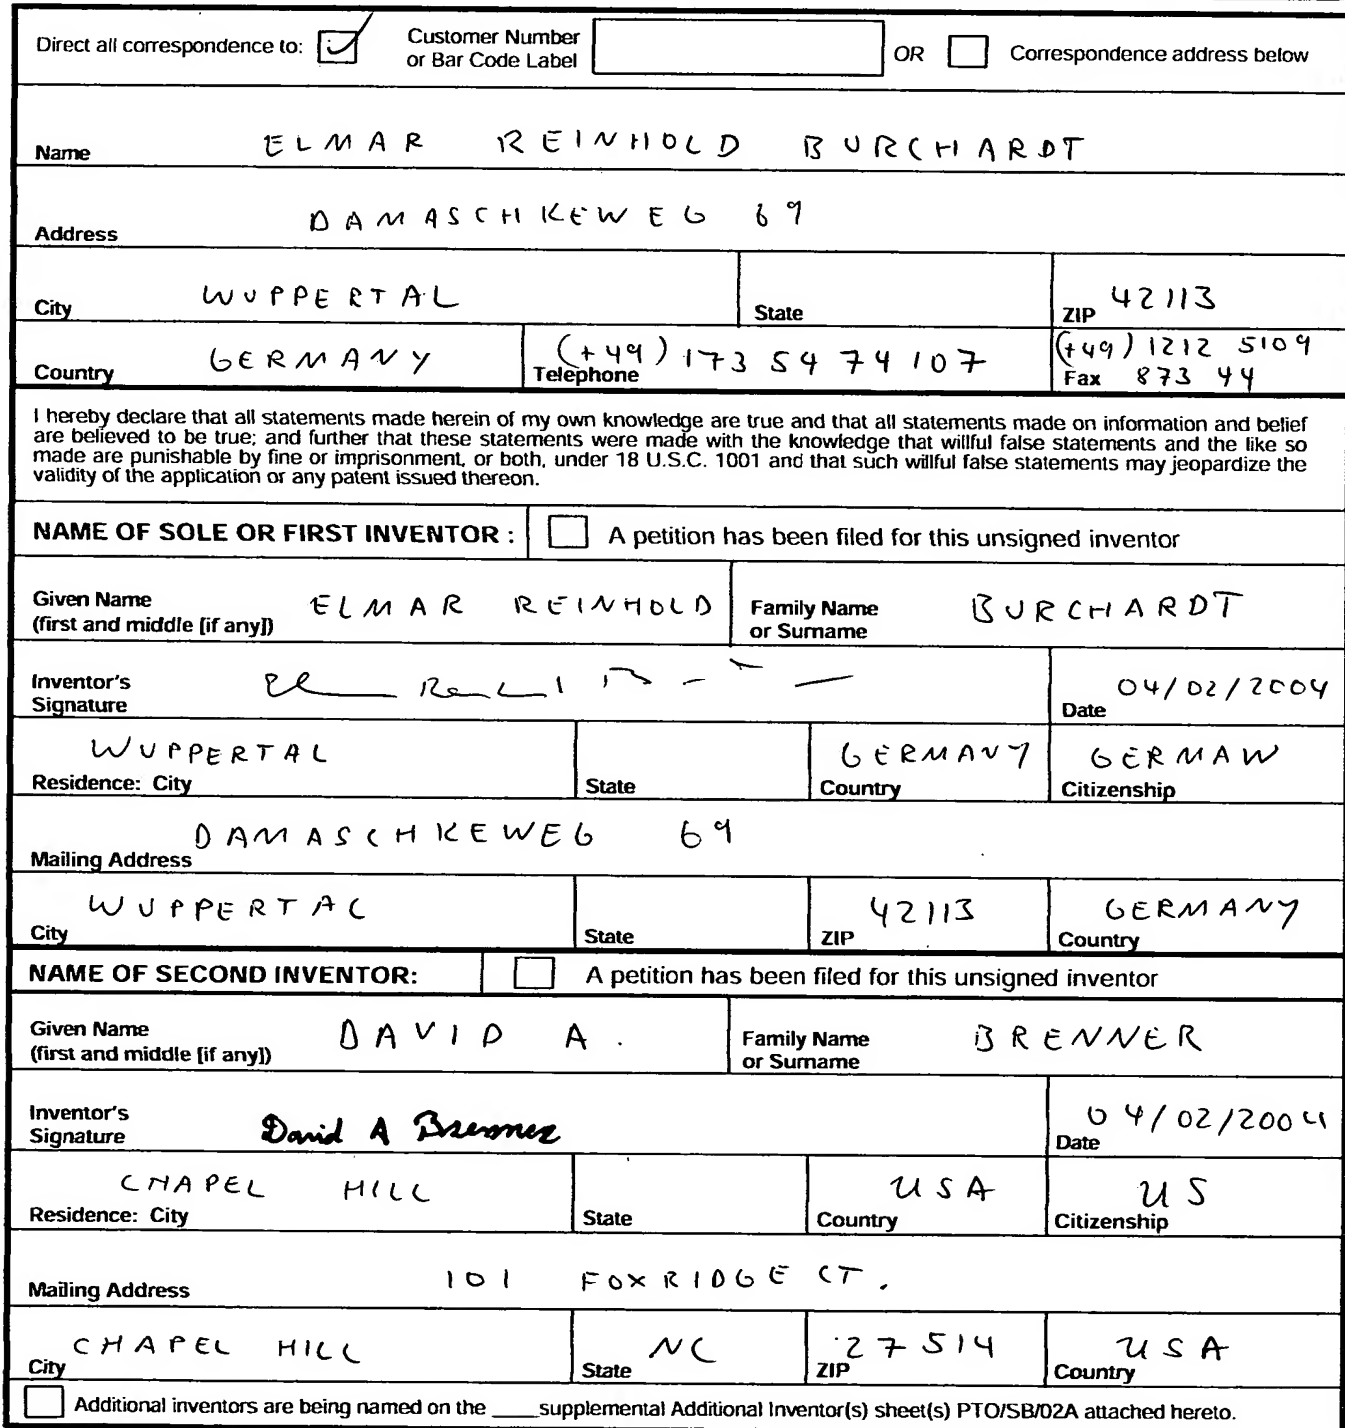 Direct all correspondence to: Customer Number or Bar Code Label OR Correspondence address below
Name ELMAR REINHOLD BURCHARDT
Address DAMASCHKEWEG 69
City WUPPERTAL State ZIP 42113
Country GERMANY Telephone (+49) 173 54 74 107 Fax (+49) 1212 5109 873 44
I hereby declare that all statements made herein of my own knowledge are true and that all statements made on information and belief
are believed to be true; and further that these statements were made with the knowledge that willful false statements and the like so
made are punishable by fine or imprisonment, or both, under 18 U.S.C. 1001 and that such willful false statements may jeopardize the
validity of the application or any patent issued thereon.
NAME OF SOLE OR FIRST INVENTOR : A petition has been filed for this unsigned inventor
Given Name (first and middle [if any]) ELMAR REINHOLD Family Name or Surname BURCHARDT
Inventor's Signature Date 04/02/2004
WUPPERTAL GERMANY GERMAN
Residence: City State Country Citizenship
Mailing Address DAMASCHKEWEG 69
WUPPERTAL 42113 GERMANY
City State ZIP Country
NAME OF SECOND INVENTOR: A petition has been filed for this unsigned inventor
Given Name (first and middle [if any]) DAVID A. Family Name or Surname BRENNER
Inventor's Signature David A Brenner Date 04/02/2004
CHAPEL HILL USA US
Residence: City State Country Citizenship
Mailing Address 101 FOXRIDGE CT.
CHAPEL HILL NC 27514 USA
City State ZIP Country
Additional inventors are being named on the ____supplemental Additional Inventor(s) sheet(s) PTO/SB/02A attached hereto.